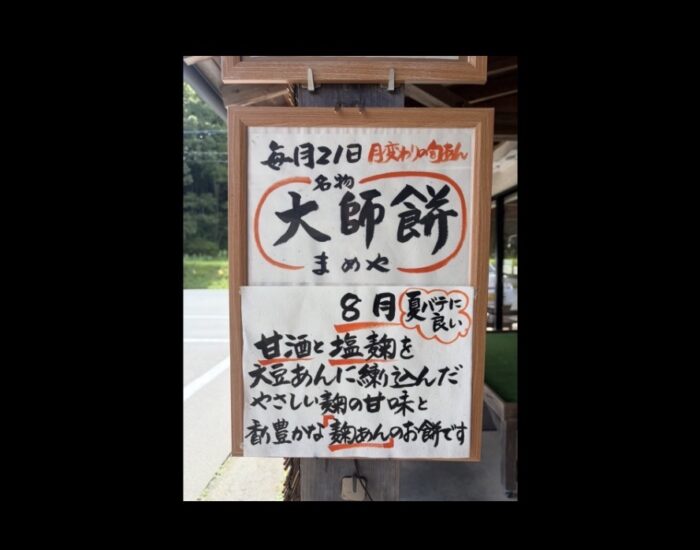 毎月21日 月変わりの旬あん
名物
大師餅
まめや
8月 夏バテに
良い
甘酒と塩麹を
大豆あんに練り込んだ
やさしい麹の甘味と
香り豊かな「麹あん」のお餅です